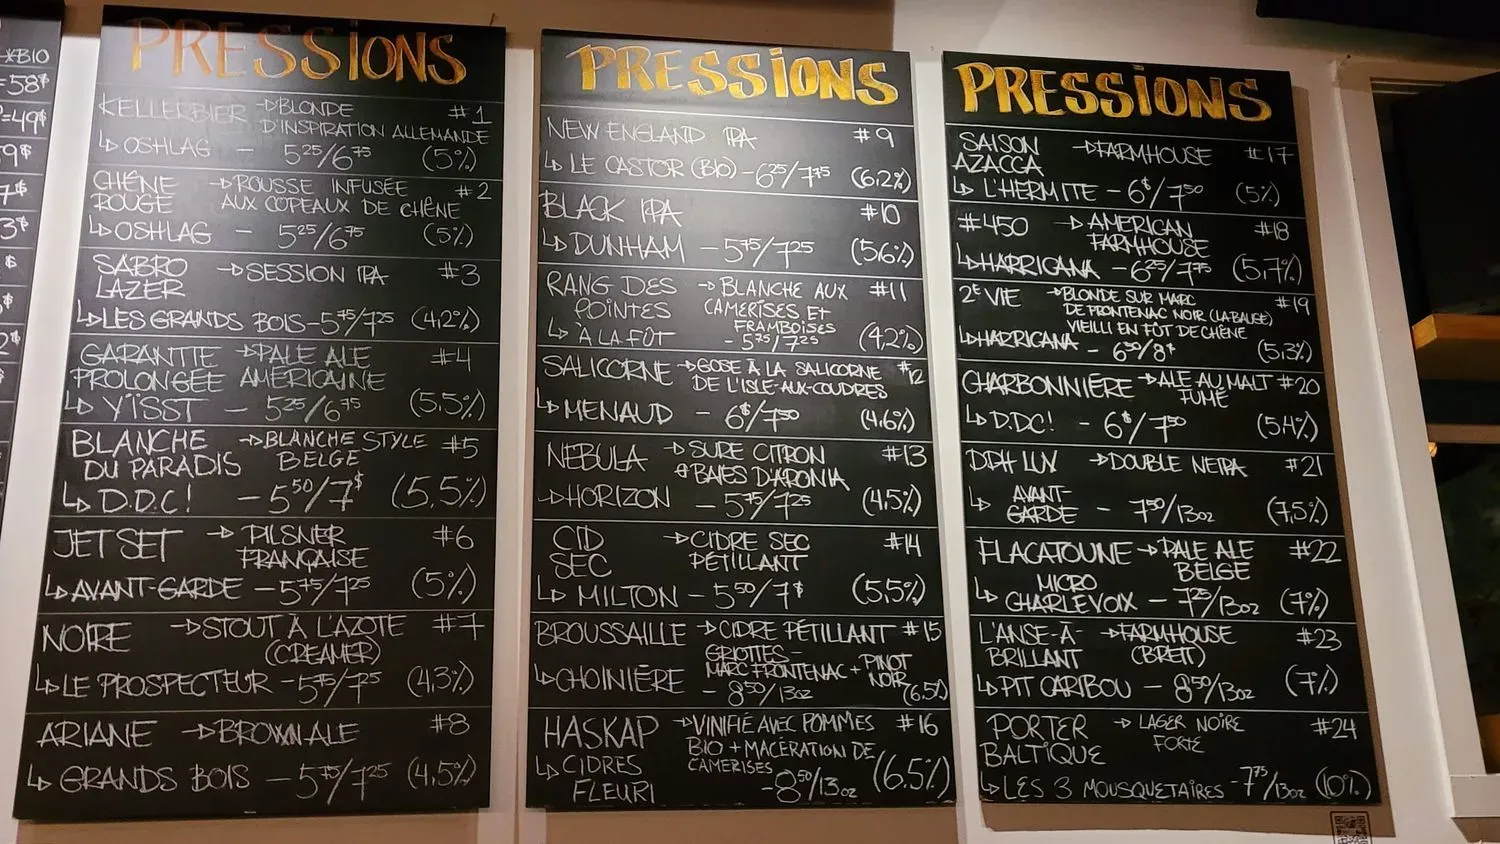 *BIO
=58$
=49$
9$
7$
3$
PRESSIONS
KELLERBIER → BLONDE #1
D'INSPIRATION ALLEMANDE
↳ OSHLAG - 5²⁵/6⁷⁵ (5%)
CHÊNE → ROUSSE INFUSÉE #2
ROUGE AUX COPEAUX DE CHÊNE
↳ OSHLAG - 5²⁵/6⁷⁵ (5%)
SABRO → SESSION IPA #3
LAZER
↳ LES GRANDS BOIS - 5⁷⁵/7²⁵ (4,2%)
GARANTIE → PALE ALE #4
PROLONGÉE AMÉRICAINE
↳ YÏSST - 5²⁵/6⁷⁵ (5.5%)
BLANCHE → BLANCHE STYLE #5
DU PARADIS BELGE
↳ D.D.C! - 5⁵⁰/7$ (5,5%)
JET SET → PILSNER #6
FRANÇAISE
↳ AVANT-GARDE - 5⁷⁵/7²⁵ (5%)
NOIRE → STOUT À L'AZOTE #7
(CREAMER)
↳ LE PROSPECTEUR - 5⁷⁵/7²⁵ (4,3%)
ARIANE → BROWN ALE #8
↳ GRANDS BOIS - 5⁷⁵/7²⁵ (4,5%)
PRESSIONS
NEW ENGLAND IPA #9
↳ LE CASTOR (BIO) - 6²⁵/7⁷⁵ (6,2%)
BLACK IPA #10
↳ DUNHAM - 5⁷⁵/7²⁵ (5,6%)
RANG DES → BLANCHE AUX #11
POINTES CAMERISES ET
FRAMBOISES
↳ À LA FÛT - 5⁷⁵/7²⁵ (4,2%)
SALICORNE → GOSE À LA SALICORNE #12
DE L'ISLE-AUX-COUDRES
↳ MENAUD - 6$/7⁵⁰ (4.6%)
NEBULA → SURE CITRON #13
& BAIES D'ARONIA
↳ HORIZON - 5⁷⁵/7²⁵ (4,5%)
CID → CIDRE SEC #14
SEC PÉTILLANT
↳ MILTON - 5⁵⁰/7$ (5,5%)
BROUSSAILLE → CIDRE PÉTILLANT #15
GRIOTTES -
MARC FRONTENAC + PINOT NOIR
↳ CHOINIÈRE - 8⁵⁰/13oz (6.5%)
HASKAP → VINIFIÉ AVEC POMMES #16
BIO + MACÉRATION DE
CAMERISES
↳ CIDRES
FLEURI - 8⁵⁰/13oz (6.5%)
PRESSIONS
SAISON → FARMHOUSE #17
AZACCA
↳ L'HERMITE - 6$/7⁵⁰ (5%)
#450 → AMERICAN #18
FARMHOUSE
↳ HARRICANA - 6²⁵/7⁷⁵ (5,7%)
2ᵉ VIE → BLONDE SUR MARC #19
DE FRONTENAC NOIR (LA BAUGE)
VIEILLI EN FÛT DE CHÊNE
↳ HARRICANA - 6⁵⁰/8$ (5,3%)
CHARBONNIÈRE → ALE AU MALT #20
FUMÉ
↳ D.D.C! - 6$/7⁵⁰ (5,4%)
DDH LUV → DOUBLE NEIPA #21
↳ AVANT-
GARDE - 7⁵⁰/13oz (7,5%)
FLACATOUNE → PALE ALE #22
BELGE
↳ MICRO
CHARLEVOIX - 7²⁵/13oz (7%)
L'ANSE-À- → FARMHOUSE #23
BRILLANT (BRETT)
↳ PIT CARIBOU - 8⁵⁰/13oz (7%)
PORTER → LAGER NOIRE #24
BALTIQUE FORTE
↳ LES 3 MOUSQUETAIRES - 7⁷⁵/13oz (10%)